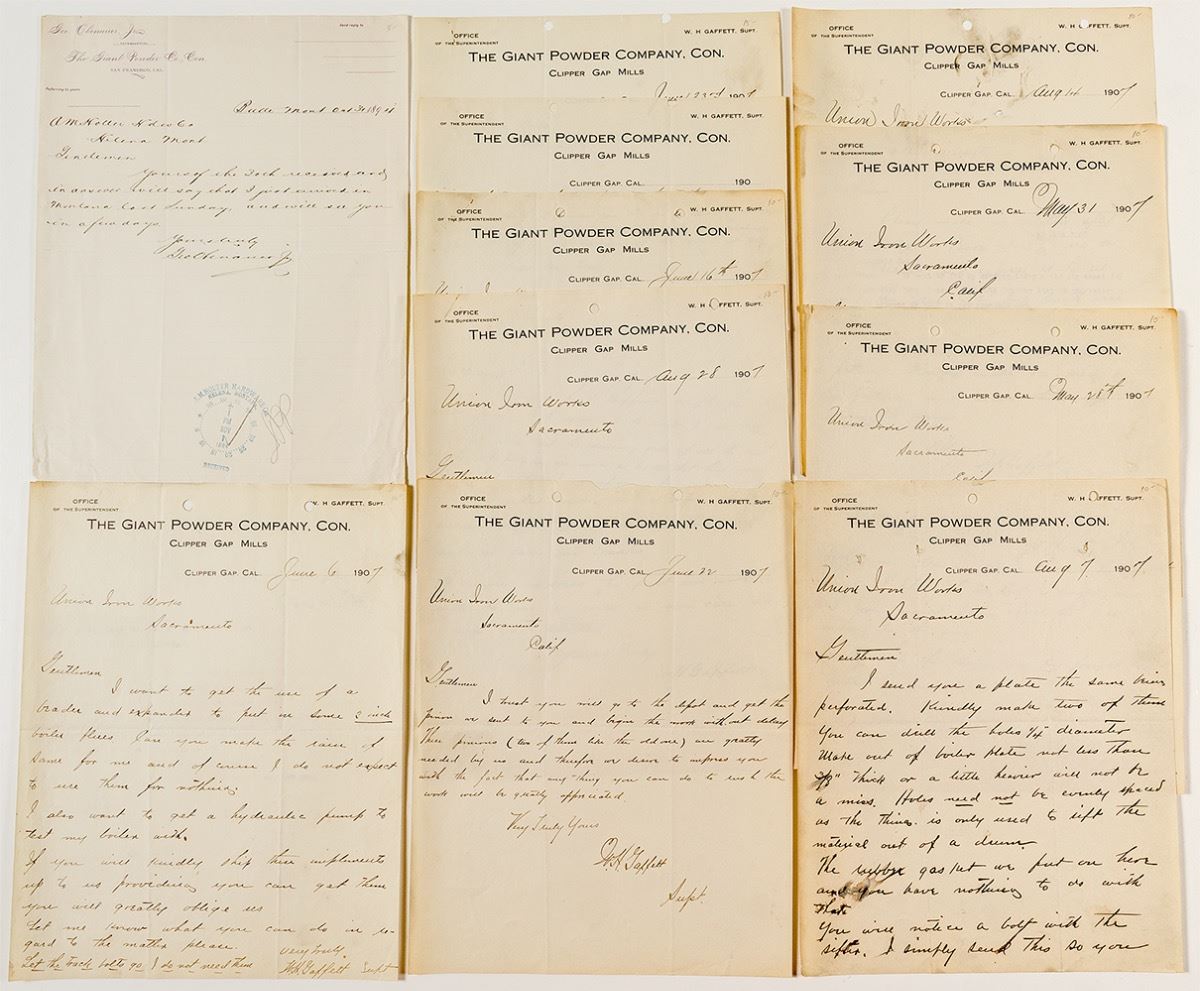 Geo. Ohenauer, Jr.
The Giant Powder Co. Con.
SAN FRANCISCO, CAL.
Send reply to
Referring to yours
Mont Oct 31 189
A M Holter Hdw Co
Helena Mont
Gentlemen
Yours of the 30th received and
in answer will say that I just arrived in
Montana last Sunday, and will see you
in a few days.
Yours truly
A.M. HOLTER HARDWARE CO.
HELENA, MONT.
PM
NOV
1
RECEIVED
OFFICE
OF THE SUPERINTENDENT
W. H GAFFETT, SUPT.
THE GIANT POWDER COMPANY, CON.
CLIPPER GAP MILLS
June 23rd 1907
OFFICE
OF THE SUPERINTENDENT
W. H GAFFETT, SUPT.
THE GIANT POWDER COMPANY, CON.
CLIPPER GAP MILLS
CLIPPER GAP. CAL. 190
OFFICE
OF THE SUPERINTENDENT
W. H GAFFETT, SUPT.
THE GIANT POWDER COMPANY, CON.
CLIPPER GAP MILLS
CLIPPER GAP. CAL. June 16th 1907
OFFICE
OF THE SUPERINTENDENT
W. H GAFFETT, SUPT.
THE GIANT POWDER COMPANY, CON.
CLIPPER GAP MILLS
CLIPPER GAP. CAL. Aug 28 1907
Union Iron Works
Sacramento
Gentlemen
OFFICE
OF THE SUPERINTENDENT
W. H GAFFETT, SUPT.
THE GIANT POWDER COMPANY, CON.
CLIPPER GAP MILLS
CLIPPER GAP. CAL. Aug 14 1907
Union Iron Works
OFFICE
OF THE SUPERINTENDENT
W. H GAFFETT, SUPT.
THE GIANT POWDER COMPANY, CON.
CLIPPER GAP MILLS
CLIPPER GAP. CAL. May 31 1907
Union Iron Works
Sacramento
Calif
OFFICE
OF THE SUPERINTENDENT
W. H GAFFETT. SUPT.
THE GIANT POWDER COMPANY, CON.
CLIPPER GAP MILLS
CLIPPER GAP. CAL. May 28th 1907
Union Iron Works
Sacramento
Calif
OFFICE
OF THE SUPERINTENDENT
W. H GAFFETT, SUPT.
THE GIANT POWDER COMPANY, CON.
CLIPPER GAP MILLS
CLIPPER GAP. CAL. June 6 1907
Union Iron Works
Sacramento
Gentlemen
I want to get the use of a
beader and expander to put in some 3 inch
boiler flues Can you make the raise of
same for me and of course I do not expect
to use them for nothing.
I also want to get a hydraulic pump to
test my boiler with.
If you will kindly ship these implements
up to us providing you can get them
you will greatly oblige us
Let me know what you can do in re-
gard to the matter please.
Very truly.
Let the track bolts go. I do not need them
W.H. Gaffett Supt
OFFICE
OF THE SUPERINTENDENT
W. H GAFFETT, SUPT.
THE GIANT POWDER COMPANY, CON.
CLIPPER GAP MILLS
CLIPPER GAP. CAL. June 22 1907
Union Iron Works
Sacramento
Calif
Gentlemen
I trust you will go to the depot and get the
pinion we sent to you and begin the work without delay
These pinions (two of them like the old one) are greatly
needed by us and therefore we desire to impress you
with the fact that any thing you can do to rush the
work will be greatly appreciated.
Very Truly Yours
W.H. Gaffett
Supt.
OFFICE
OF THE SUPERINTENDENT
W. H GAFFETT, SUPT.
THE GIANT POWDER COMPANY, CON.
CLIPPER GAP MILLS
CLIPPER GAP. CAL. Aug 7 1907
Union Iron Works
Sacramento
Gentlemen
I send you a plate the same being
perforated. Kindly make two of them
You can drill the holes 1/4" diameter
Make out of boiler plate not less than
thick or a little heavier will not be
a miss. Holes need not be evenly spaced
as the thing is only used to sift the
material out of a drum
The rubber gasket we put on here
and you have nothing to do with
that
You will notice a bolt with the
sifter. I simply send this so you